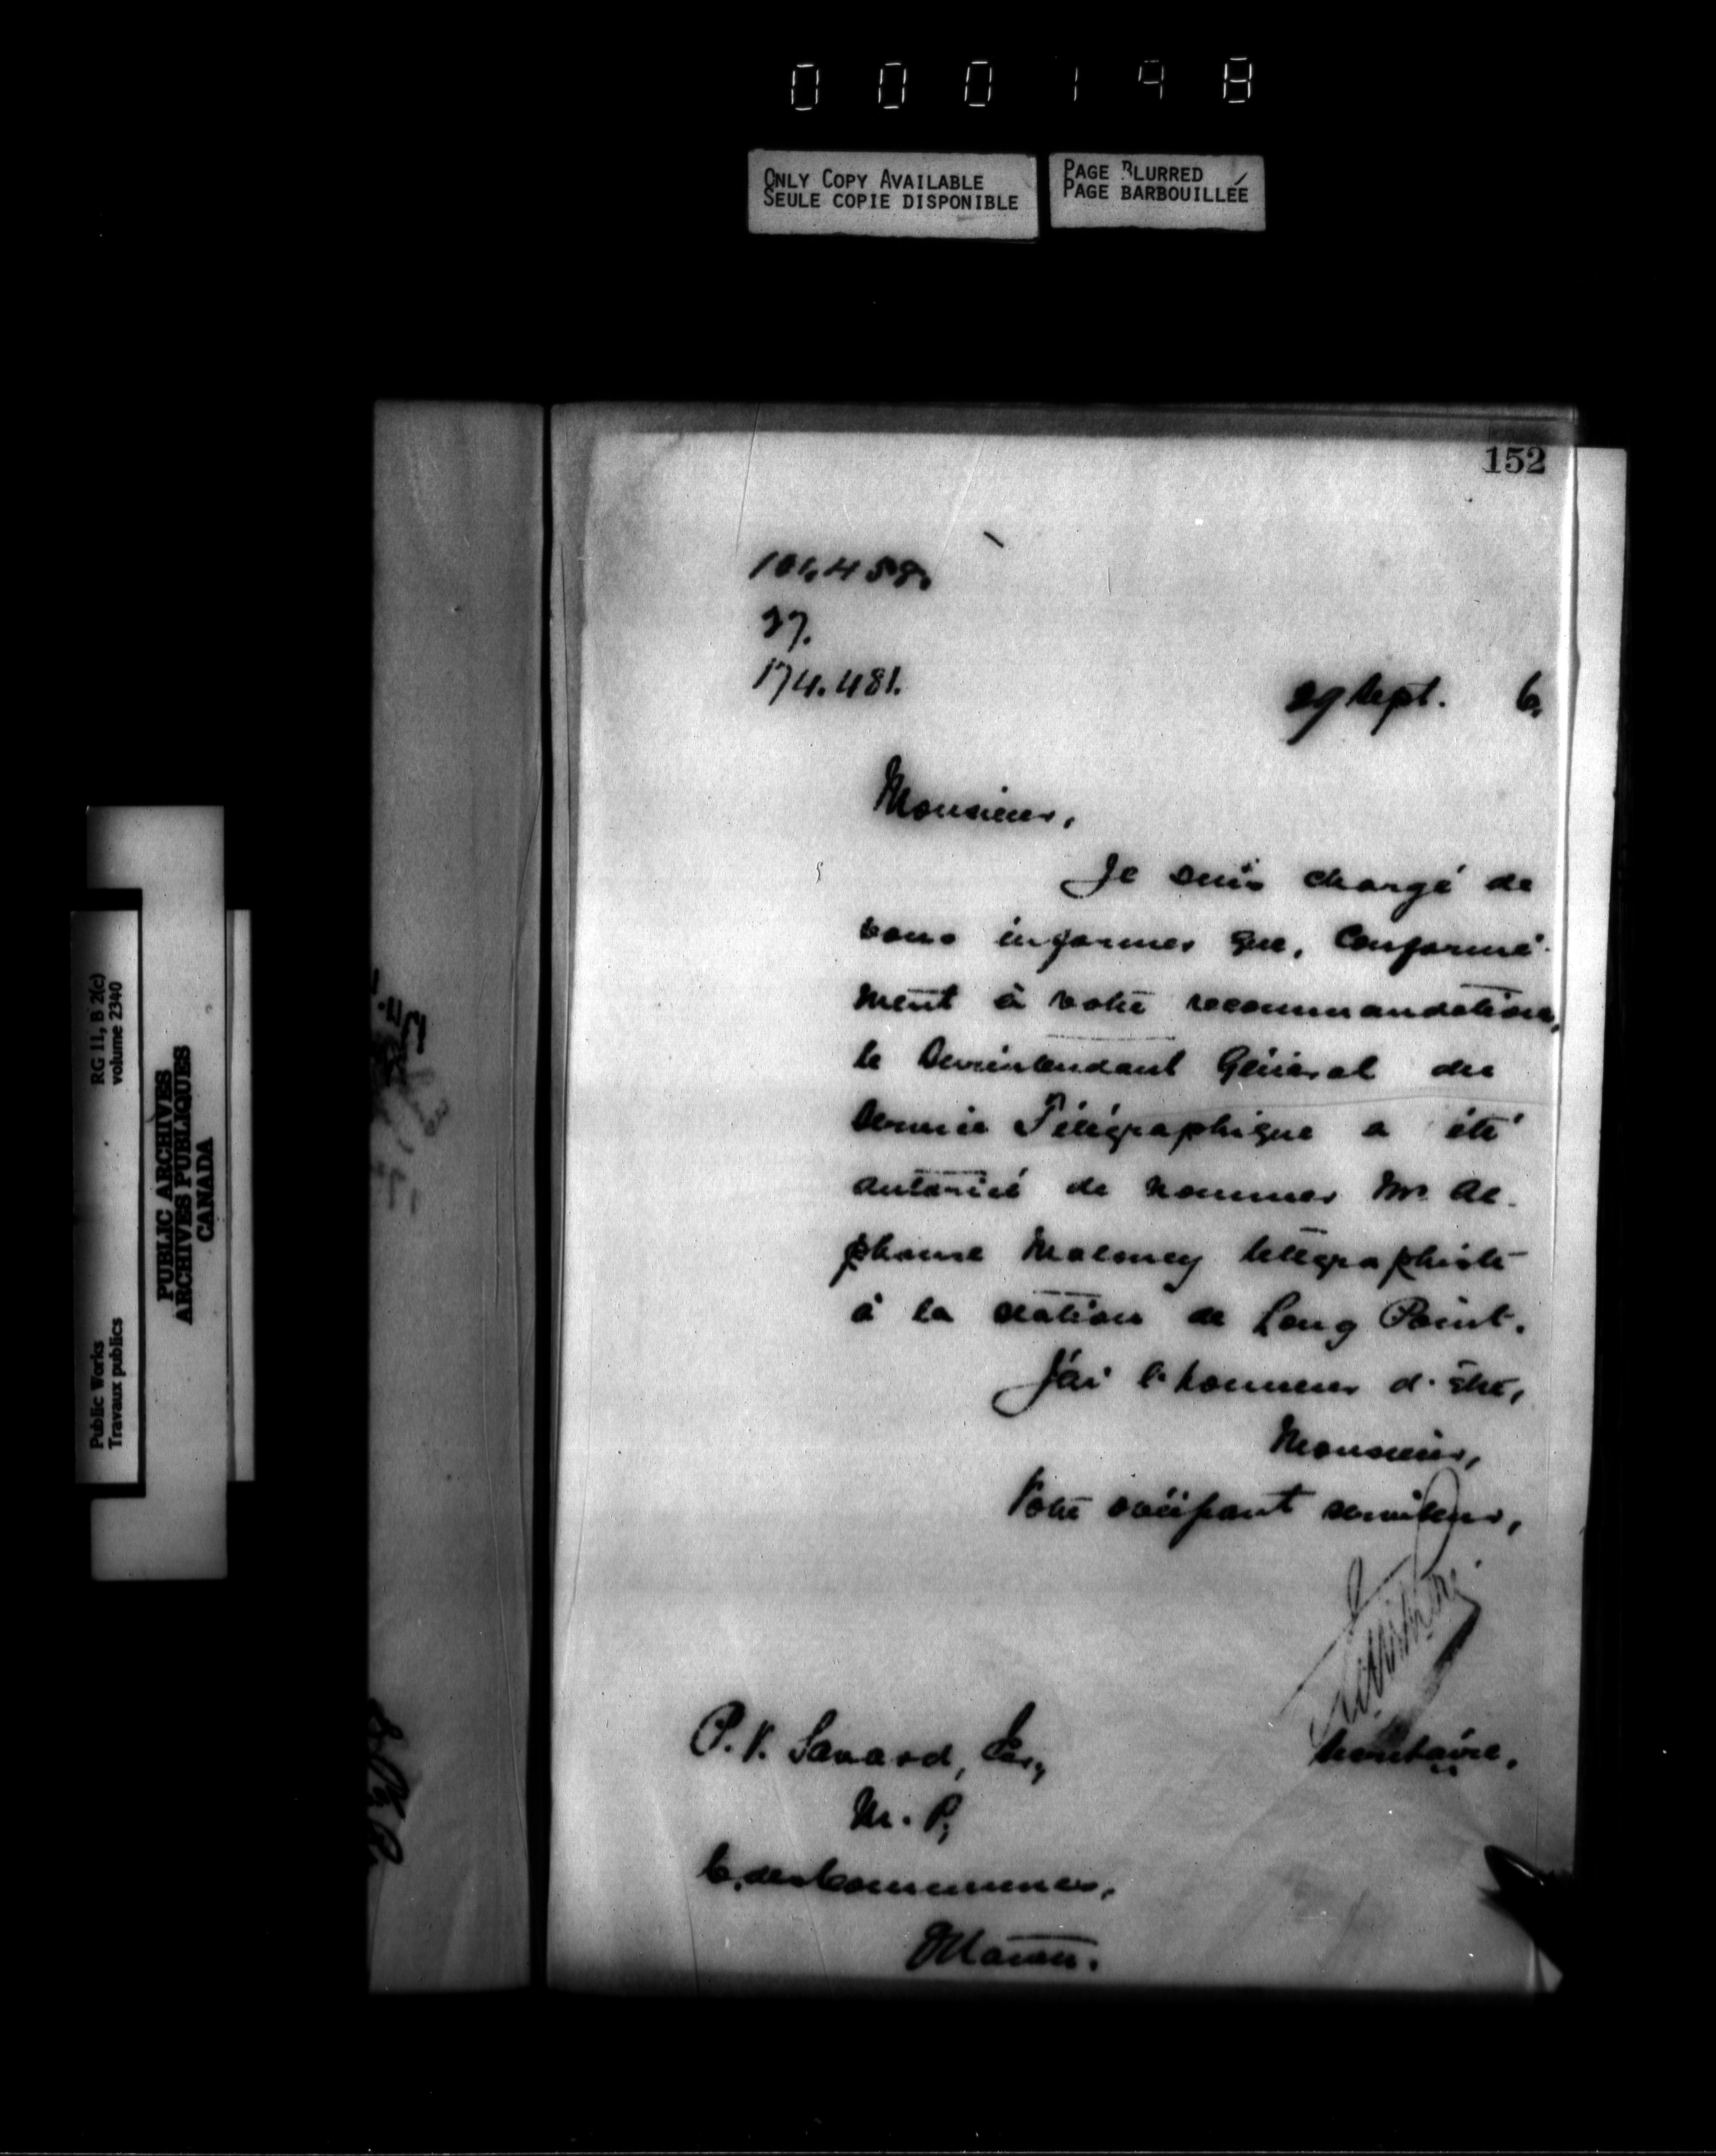 000198
ONLY COPY AVAILABLE
SEULE COPIE DISPONIBLE
PAGE BLURRED
PAGE BARBOUILLÉE
152
37.
174.481.
29 Sept. 6.
Monsieur,
Je suis chargé de
vous informer que, conformé-
ment à votre recommandation,
le Surintendant Général du
Service Télégraphique a été
autorisé de nommer Mr. Al-
phonse Maloney télégraphiste
à la station de Long Point.
J'ai l'honneur d'être,
Monsieur,
Votre obéissant serviteur,
Secrétaire.
P. V. Savard, Ecr,
M. P,
C. des Communes,
Ottawa.
RG 11, B 2(c)
volume 2340
Public Works
Travaux publics
PUBLIC ARCHIVES
ARCHIVES PUBLIQUES
CANADA